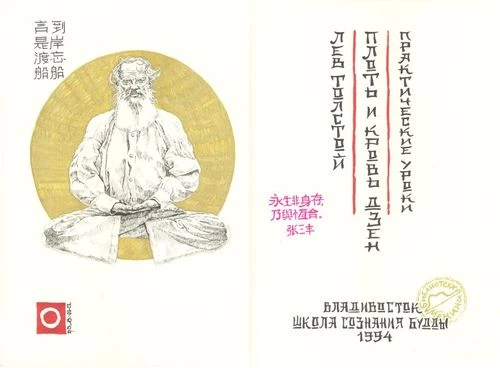 到岸忘船
言是渡船
ЛЕВ ТОЛСТОЙ
ПЛОТЬ И КРОВЬ ДЗЕН
ПРАКТИЧЕСКИЕ УРОКИ
永生非身存,
乃與恆合.
张三丰
ВЛАДИВОСТОК
ШКОЛА СОЗНАНИЯ БУДДЫ
1994
БИБЛИОТЕКА